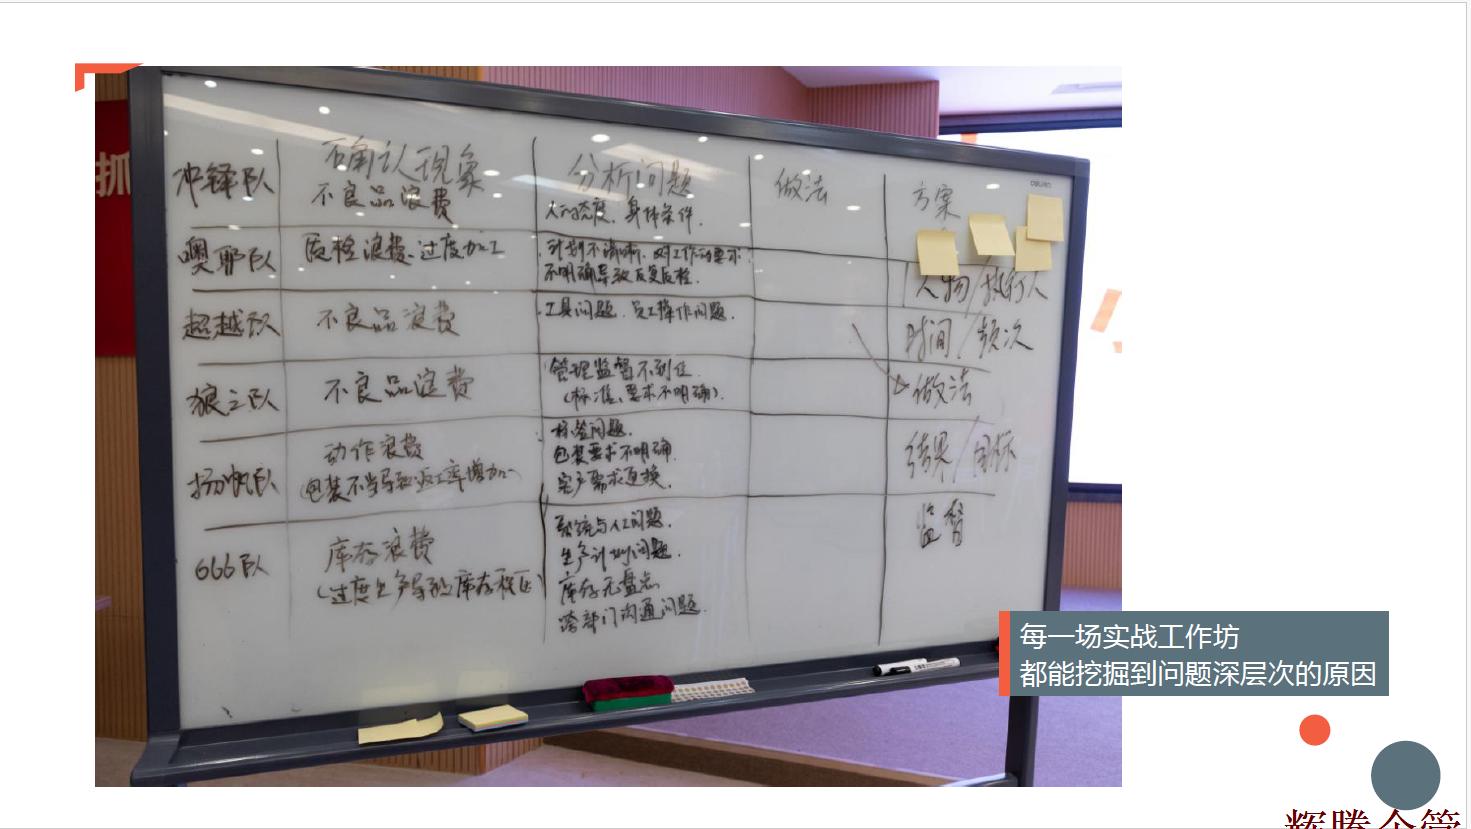 抓
确认现象
分析问题
做法
方案
deli
冲锋队
不良品浪费
人的态度、身体条件.
噢耶队
质检浪费、过度加工
计划不清晰、对工作的要求
不明确导致反复质检.
超越队
不良品浪费
工具问题、员工操作问题.
狼之队
不良品浪费
管理监督不到位
(标准、要求不明确).
扬帆队
动作浪费
(包装不当导致返工率增加)
标签问题.
包装要求不明确.
客户需求更换.
666队
库存浪费
(过度生产导致库存积压)
系统与人工问题.
生产计划问题.
库存无盘点
跨部门沟通问题.
人物/执行人
时间/频次
做法
结果/目标
监督
每一场实战工作坊
都能挖掘到问题深层次的原因
辉腾企管